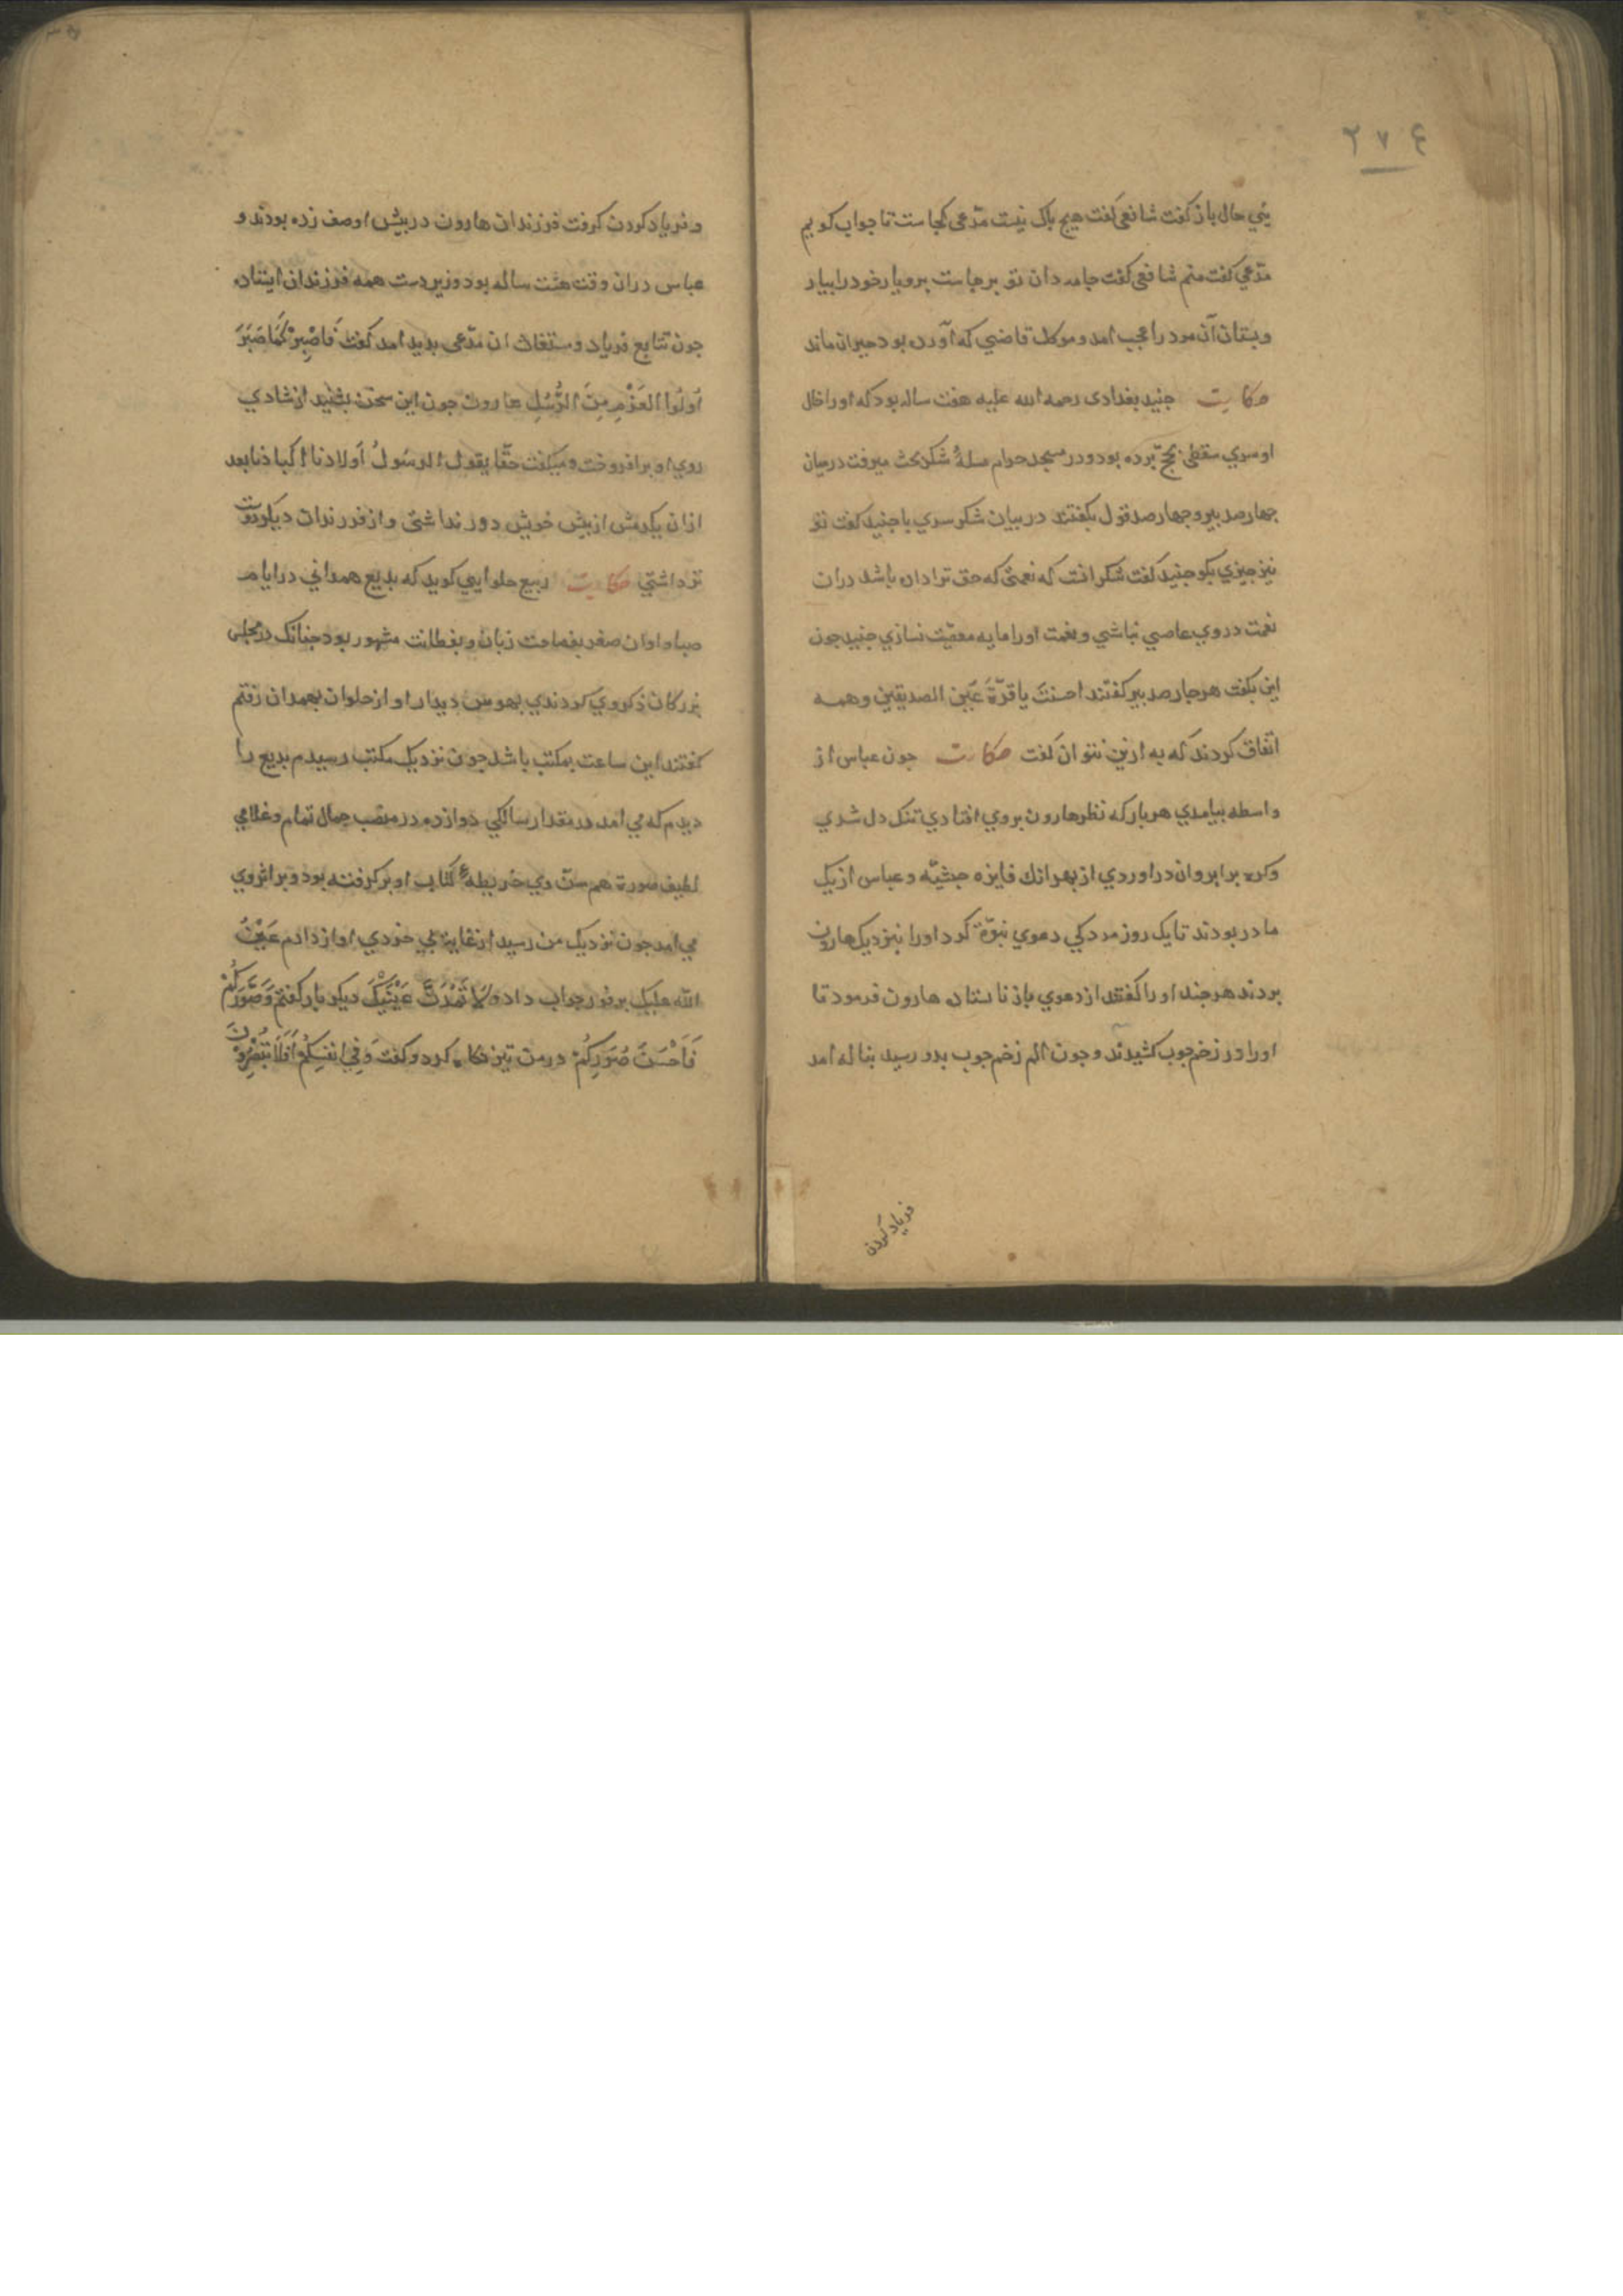 ۲۷۴
یٔی حال باز کفت شافعی کفت هیچ باک نیست مدّعی کجاست تا جواب کویم
مدّعی کفت منم شافعی کفت جامه دان تو برجاست برو یار خود را بیار
و بستان آن مرد را عجب امد و موکل قاضی که آورده بود حیران ماند
حکایت جنید بغدادی رحمه الله علیه هفت ساله بود که او را خال
او سری سقطی بحج برده بود و در مسجد حرام مسلهٔ شکر بحث میرفت در میان
جهار صد بیر و جهار صد قول بکفتند در بیان شکر سری با جنید کفت تو
نیز جیزی بکو جنید کفت شکر انست که نعمتی که حق ترا داده باشد دران
نعمت در وی عاصی نباشی و نعمت او را مایه معصیت نسازی جنید جون
این بکفت هر جهار صد بیر کفتند احسنت یا قرّةَ عَین الصدیقین و همه
اتفاق کردند که به ازین نتوان کفت حکایت جون عباس از
واسطه بیامدی هر بار که نظر هارون بروی افتادی تنک دل شدی
وکره بر ابروان در اوردی از بهر انك فایزه حبشیّه و عباس از یک
مادر بودند تا یک روز مردکی دعوی نبوّة کرد او را بنزدیک هارون
بردند هر جند او را کفتند از دعوی باز نا ستاد هارون فرمود تا
او را در زخم جوب کشیدند و جون الم زخم جوب بدو رسید بناله امد
فریاد کردن
و فریاد کردن کرفت فرزندان هارون در بیش او صف زده بودند و
عباس دران وقت هشت ساله بود و زیر دست همه فرزندان ایستاده
جون تتابع فریاد و ستغاث ان مدّعی بدید امد کفت فَاصْبِرْ کَمَا صَبَرَ
اُولُوا العَزْمِ مِنَ الرُّسُلِ هارون جون این سخن بشنید از شادی
روی او برافروخت و میکفت حقّا یقول الرسُولُ اَولادنا اکبادنا بعد
ازان یکدمش از بیش خویش دور نداشتی و از فرزندان دیکر دوست
تر داشتی حکایت ربیع حلوایی کوید که بدیع همدانی در ایام
صبا و اوان صغر بفصاحت زبان و بفطانت مشهور بود جنانک در مجلس
بزرکان ذکر وی کردندی بهوس دیدار او از حلوان بهمدان رفتم
کفتند این ساعت بمکتب باشد جون نزدیک مکتب رسیدم بدیع را
دیدم که می امد در مقدار سالکی دوازده در منصب جمال تمام و غلامی
لطیف صورة هم سن وی خریطهٔ کتاب او بر کرفته بود و بر اثر وی
می امد جون نزدیک من رسید از غایة بی خودی اواز دادم عَیْنُ
الله علیک بر فور جواب داد و لَا تَمُدَّنَّ عَیْنَیْکَ دیکر بار کفتم وَصَوَّرَکُمْ
فَاَحْسَنَ صُوَرَکُمْ در من تیز نکاه کرد و کفت وَفِی انفُسِکُمْ اَفَلَا تُبْصِرُونَ